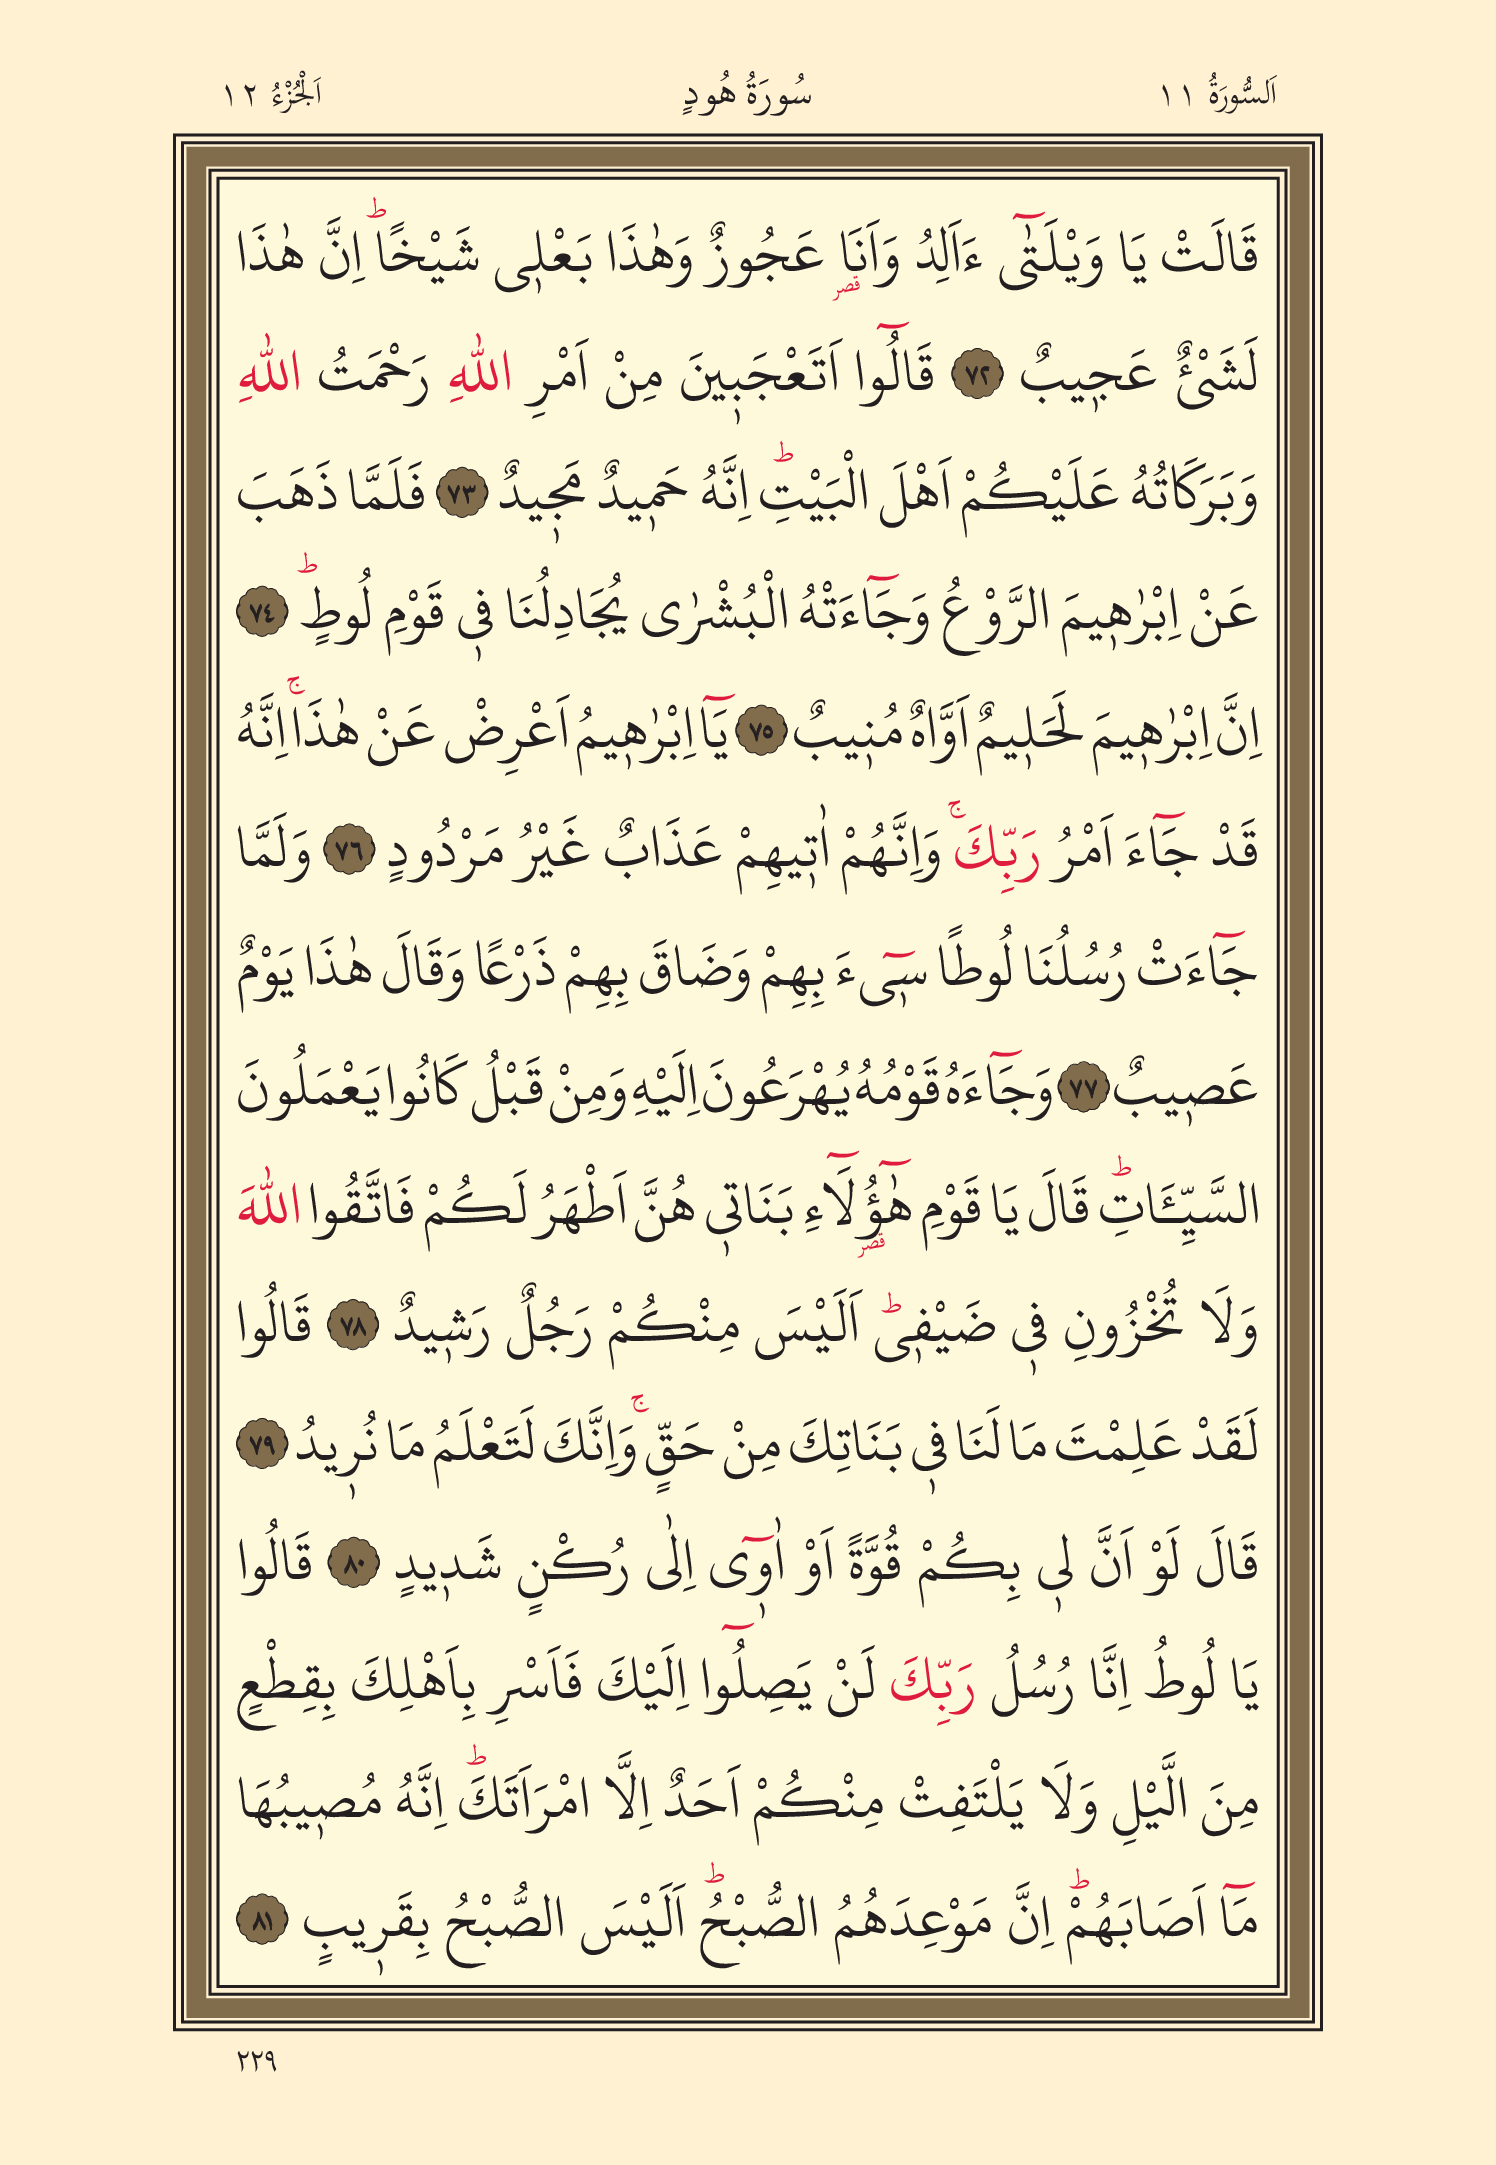 اَلسُّورَةُ ١١ سُورَةُ هُودٍ اَلْجُزْءُ ١٢
قَالَتْ يَا وَيْلَتٰٓى ءَاَلِدُ وَاَنَا۬ عَجُوزٌ وَهٰذَا بَعْلٖى شَيْخًاۜ اِنَّ هٰذَا
قصر
لَشَىْءٌ عَجٖيبٌ ﴿٧٢﴾ قَالُٓوا اَتَعْجَبٖينَ مِنْ اَمْرِ اللّٰهِ رَحْمَتُ اللّٰهِ
وَبَرَكَاتُهُ عَلَيْكُمْ اَهْلَ الْبَيْتِۜ اِنَّهُ حَمٖيدٌ مَجٖيدٌ ﴿٧٣﴾ فَلَمَّا ذَهَبَ
عَنْ اِبْرٰهٖيمَ الرَّوْعُ وَجَٓاءَتْهُ الْبُشْرٰى يُجَادِلُنَا فٖى قَوْمِ لُوطٍۜ ﴿٧٤﴾
اِنَّ اِبْرٰهٖيمَ لَحَلٖيمٌ اَوَّاهٌ مُنٖيبٌ ﴿٧٥﴾ يَٓا اِبْرٰهٖيمُ اَعْرِضْ عَنْ هٰذَاۚ اِنَّهُ
قَدْ جَٓاءَ اَمْرُ رَبِّكَۚ وَاِنَّهُمْ اٰتٖيهِمْ عَذَابٌ غَيْرُ مَرْدُودٍ ﴿٧٦﴾ وَلَمَّا
جَٓاءَتْ رُسُلُنَا لُوطًا سٖٓىءَ بِهِمْ وَضَاقَ بِهِمْ ذَرْعًا وَقَالَ هٰذَا يَوْمٌ
عَصٖيبٌ ﴿٧٧﴾ وَجَٓاءَهُ قَوْمُهُ يُهْرَعُونَ اِلَيْهِ وَمِنْ قَبْلُ كَانُوا يَعْمَلُونَ
السَّيِّـَٔاتِۜ قَالَ يَا قَوْمِ هٰٓؤُ۬لَٓاءِ بَنَاتٖى هُنَّ اَطْهَرُ لَكُمْ فَاتَّقُوا اللّٰهَ
قصر
وَلَا تُخْزُونِ فٖى ضَيْفٖىۜ اَلَيْسَ مِنْكُمْ رَجُلٌ رَشٖيدٌ ﴿٧٨﴾ قَالُوا
لَقَدْ عَلِمْتَ مَا لَنَا فٖى بَنَاتِكَ مِنْ حَقٍّۚ وَاِنَّكَ لَتَعْلَمُ مَا نُرٖيدُ ﴿٧٩﴾
قَالَ لَوْ اَنَّ لٖى بِكُمْ قُوَّةً اَوْ اٰوٖٓى اِلٰى رُكْنٍ شَدٖيدٍ ﴿٨٠﴾ قَالُوا
يَا لُوطُ اِنَّا رُسُلُ رَبِّكَ لَنْ يَصِلُٓوا اِلَيْكَ فَاَسْرِ بِاَهْلِكَ بِقِطْعٍ
مِنَ الَّيْلِ وَلَا يَلْتَفِتْ مِنْكُمْ اَحَدٌ اِلَّا امْرَاَتَكَۜ اِنَّهُ مُصٖيبُهَا
مَٓا اَصَابَهُمْۜ اِنَّ مَوْعِدَهُمُ الصُّبْحُۜ اَلَيْسَ الصُّبْحُ بِقَرٖيبٍ ﴿٨١﴾
٢٢٩